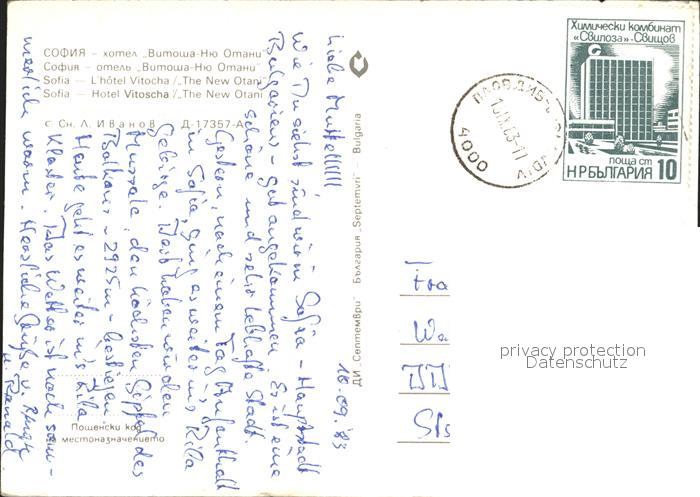 СОФИЯ – хотел „Витоша-Ню Отани"
София – отель „Витоша-Ню Отани"
Sofia – L'hôtel Vitocha /„The New Otani"
Sofia – Hotel Vitoscha /„The New Otani"
с Сн. Л. Иванов Д-17357-А
ДИ „Септември" България „Septemvri" Bulgaria
Пощенски код
на местоназначението
Химически комбинат
„Свилоза"-Свищов
поща ст
НР БЪЛГАРИЯ 10
ПЛОВДИВ
4000
10.09.83
Liebe Mutti!!!!!!
Wie Du siehst sind wir in Sofia – Hauptstadt
Bulgariens – gut angekommen. Es ist eine
schöne und sehr lebhafte Stadt.
Gestern, nach einem Tag Aufenthalt
in Sofia, ging es weiter in's Rila
Gebirge. Dort haben wir den
Mussala, den höchsten Gipfel des
Balkans – 2925m – bestiegen.
Heute geht es weiter in's Rila
Kloster. Das Wetter ist noch som-
merlich warm. Herzliche Grüße v.
u. Ronald
Fra
We
privacy protection
Datenschutz